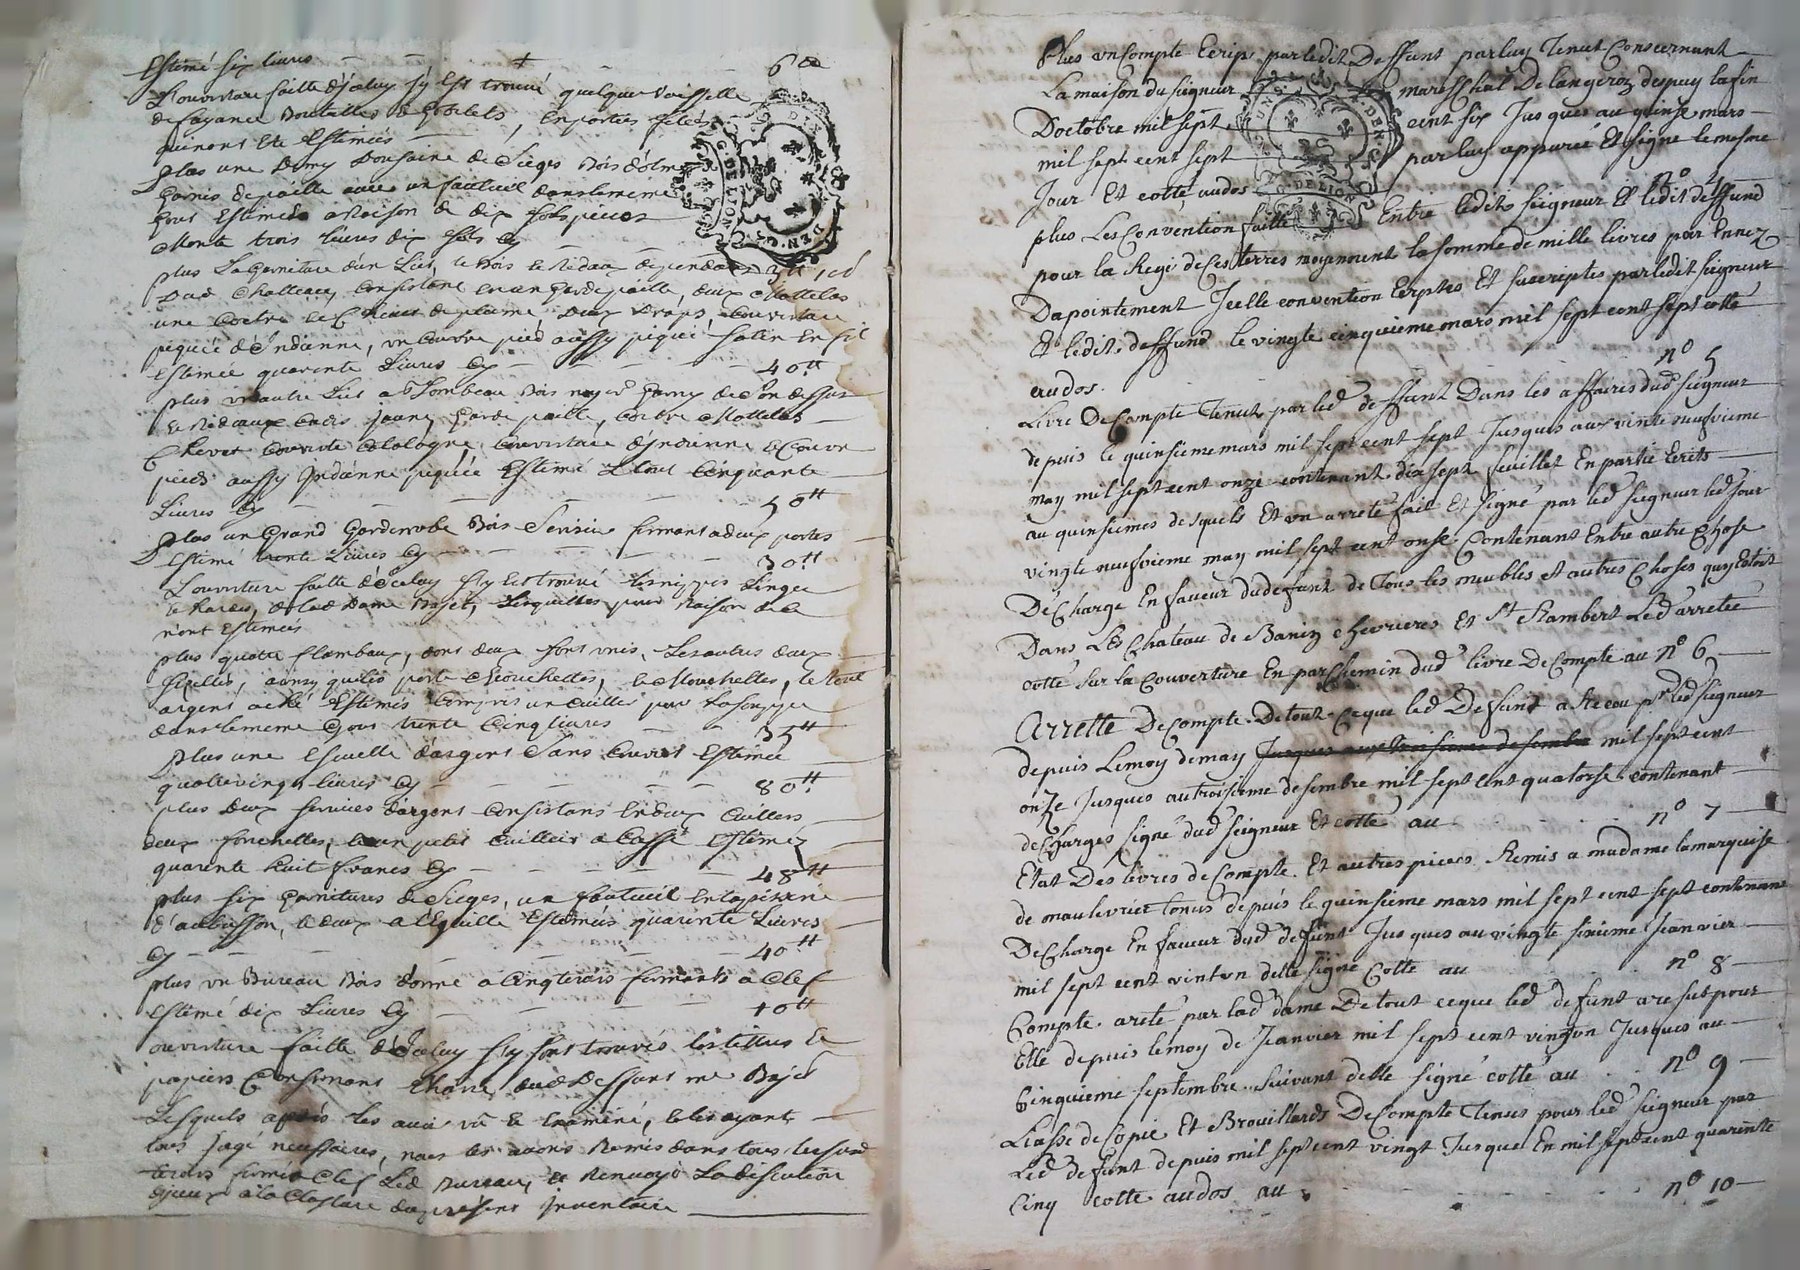 Estimé six livres 6 ₶
L'ouverture faitte d'Jceluy s'y est trouvé quelque Vaisselle
de fayance Bouteilles & Gobelets, en portées felées
qui nont Ete Estimées
plus une Demy Dousaine de Sieges Bois d'olme
Garnis de paille avec un fauteuil dans le meme
gout Estimés a Raison de dix sols pieces
Monte trois livres dix sols Cy 3₶ 10s
plus La Garniture d'un Lict, le Bois le Rideau dependant
Dud Chatteau, Consistant en un Garde paille, deux Mattelas
une Coetre le Chevet de plume Deux Draps Couverture
piquée d'Indienne, un Couvre pied aussy piqué Satin en fil
Estimée quarente Livres Cy 40₶
plus un autre Lict a Tombeau Bois noyer Garny de Son dessus
& Rideaux Cadis Jaune, Garde paille, Coetre Mattelas
Chevet Couverte Catalogne, Couverture d'Indienne & Couvre
pieds aussy Indienne piquée Estimé Le tout Cinquante
Livres Cy 50₶
Plus un Grand Garderobe Bois Serisier fermant a deux portes
Estimé trente Livres Cy 30₶
L'ouverture faitte d'Jceluy s'y est trouvé les nippes Linges
& hardes, de lad Dame Bajet, Lesquelles pour Raison de Ce
n'ont Estimées
plus quatre flambeaux, dont deux sont unis, Les autres deux
fizelles, ainsy qu'un porte Mouchettes, & Mouchettes, le tout
argent aché Estimés Compris un Cuillier pour La Souppe
dans le meme Gout trente Cinq livres 35₶
plus une Escuelle d'argent Sans Couvert Estimée
quattevingt livres Cy 80₶
plus Deux services d'argent Consistans en deux Cuilliers
deux fourchettes, & un petit Cuillier a Caffé Estimez
quarente huit francs Cy 48₶
plus six Garnitures de Sieges, un fauteuil en tapisserie
d'aubusson, & deux a l'Eguille Estimées quarente Livres
Cy 40₶
plus un Bureau Bois d'orme a Cinq tiroirs fermants a Clef
Estimé dix Livres Cy 10₶
ouverture faitte d'Jceluy s'y sont trouvés les tittres &
papiers Consernant L'hoirie dud Deffunt me Bajet
Lesquels après les avoir vû & Examiné, & les ayant
tous jugé necessaires, nous les avons Remis dans tous lesd
tiroirs fermés a Clef Led Bureau, & Renvoyé La discution
d'Jceux a la Closture du present Inventaire
Plus un Compte Ecrip par ledit Deffunt par luy Tenut Consernant
La maison du seigneur mareschal De langeron despuy la fin
Doctobre mil sept cent six Jusques au quinse mars
mil sept cent sept par luy appurée Et signé le mesme
Jour Et cotté au dos nº 4
plus Les Convention faitte Entre ledit seigneur Et ledit deffund
pour la Regi de ses terres moyennent la somme de mille livres par Ennez
Dapointement Jcelle convention Ecrptes Et suscriptes par ledit seigneur
Et ledit deffund le vingte cinquieme mars mil sept cent sept cotté
au dos. nº 5
Livre De Compte Tenut par led deffunt Dans les affaires dud seigneur
depuis le quinsieme mars mil sept cent sept Jusques aux vinte neufvieme
may mil sept cent onze contenant dix sept feuillet En partie Ecrits
au quinsiemes desquels Et un arreté fait Et signé par led seigneur led Jour
vingte neufvieme may mil sept cent onse Contenant Entre autre Chose
DéCharge En faveur dud defunt de Tous les meubles et autres Choses quy Etoit
Dans Les Chateau de Banin Chevrieres Et St Rambert Led arretée
cotté sur la Couverture En parChemin dud livre De Compte au nº 6
Arrette De Compte De tout ce que led Defunt a Recu pr led seigneur
depuis Lemoy demay Jusques aux troisieme desembre mil sept cent
onze Jusques au troisieme desembre mil sept cent quatorse contenant
deCharges signé dud seigneur Et cotté au nº 7
Etat Des livres de Compte Et autres pieces Remis a madame la marquise
de maulevrier tenus depuis le quinsieme mars mil sept cent sept contenant
DeCharge En faveur dud defunt Jusques au vingte sixieme Jeanvier
mil sept cent vint un delle signé Cotté au nº 8
Compte areté par lad dame De tout ce que led defunt a resut pour
Elle depuis lemoy de Jeanvier mil sept cent vingt un Jusques au
Cinquieme septembre Suivant delle signé cotté au nº 9
Liasse de Copie Et Brouillards De Compte Tenus pour led seigneur par
Led defunt depuis mil sept cent vingt Jusque En mil sept cent quarente
Cinq cotte au dos au nº 10